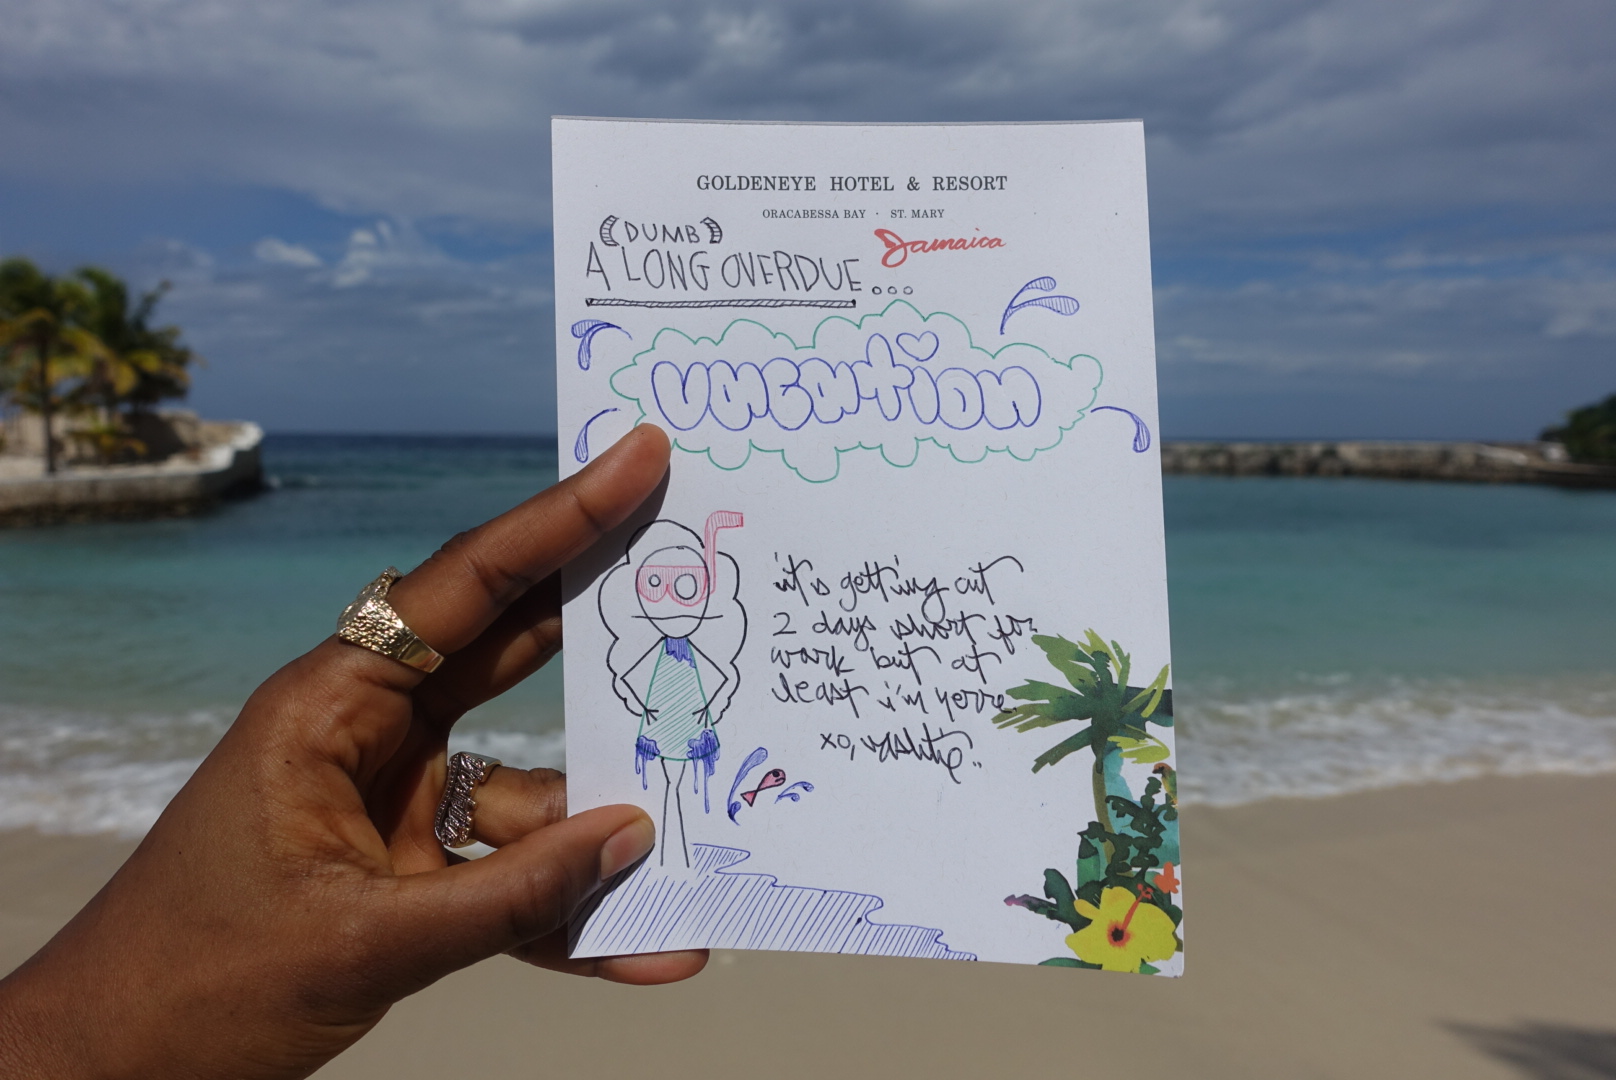 GOLDENEYE HOTEL & RESORT
ORACABESSA BAY · ST. MARY
Jamaica
(DUMB)
A LONG OVERDUE...
VACATION
it's getting cut
2 days short for
work but at
least i'm yerre.
xo, vashtie..